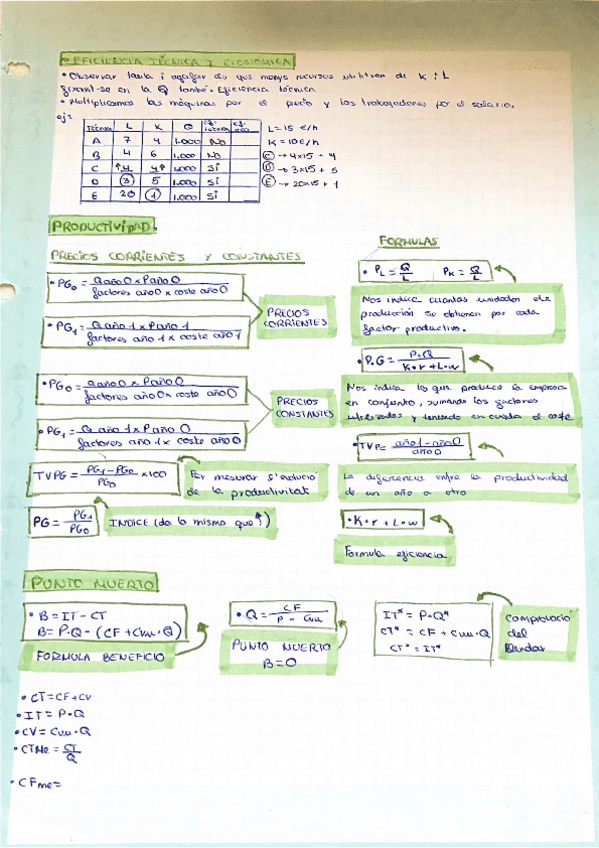 • EFICIENCIA TÈCNICA I ECONÒMICA
• Observar taula i agafar els que menys recursos utilitzen de K i L
fixant-se en la Q també = Eficiència tècnica
• Multiplicamos las máquinas por el precio y los trabajadores por el salario.
ej:
TÈCNICA L K Q ef. tècnica ef. eco
A 7 4 1.000 No
B 4 6 1.000 No
C 4 4 1.000 SÍ
D 3 5 1.000 SÍ
E 20 1 1.000 SÍ
L = 15 €/h
K = 10 €/h
C → 4x15 + 4
D → 3x15 + 5
E → 20x15 + 1
PRODUCTIVIDAD.
PRECIOS CORRIENTES Y CONSTANTES
• PG₀ = Q año 0 x P año 0 / factores año 0 x coste año 0
• PG₁ = Q año 1 x P año 1 / factores año 1 x coste año 1
PRECIOS
CORRIENTES
• PG₀ = Q año 0 x P año 0 / factores año 0 x coste año 0
• PG₁ = Q año 1 x P año 0 / factores año 1x coste año 0
PRECIOS
CONSTANTES
TVPG = PG₁ - PG₀ / PG₀ x 100
Per mesurar l'evolució
de la productivitat
PG = PG₁ / PG₀
INDICE (da lo mismo que ↑)
FORMULAS
• PL = Q / L PK = Q / L
Nos indica cuantas unidades de
producción se obtienen por cada
factor productivo.
• P.G = P·Q / K·r + L·w
Nos indica lo que produce la empresa
en conjunto, sumando los factores
utilizados y teniendo en cuenta el coste
• TVP = año 1 - año 0 / año 0
La diferencia entre la productividad
de un año a otro
• K·r + L·w
Formula eficiencia
PUNTO MUERTO
• B = IT - CT
B = P·Q - (CF + Cvu·Q)
FORMULA BENEFICIO
• Q = CF / P - Cvu
PUNTO MUERTO
B=0
IT* = P·Q*
CT* = CF + Cvu·Q
CT* = IT*
Comprovació
del
• CT = CF + CV
• IT = P·Q
• CV = Cvu·Q
• CTMe = CT / Q
• CFme=